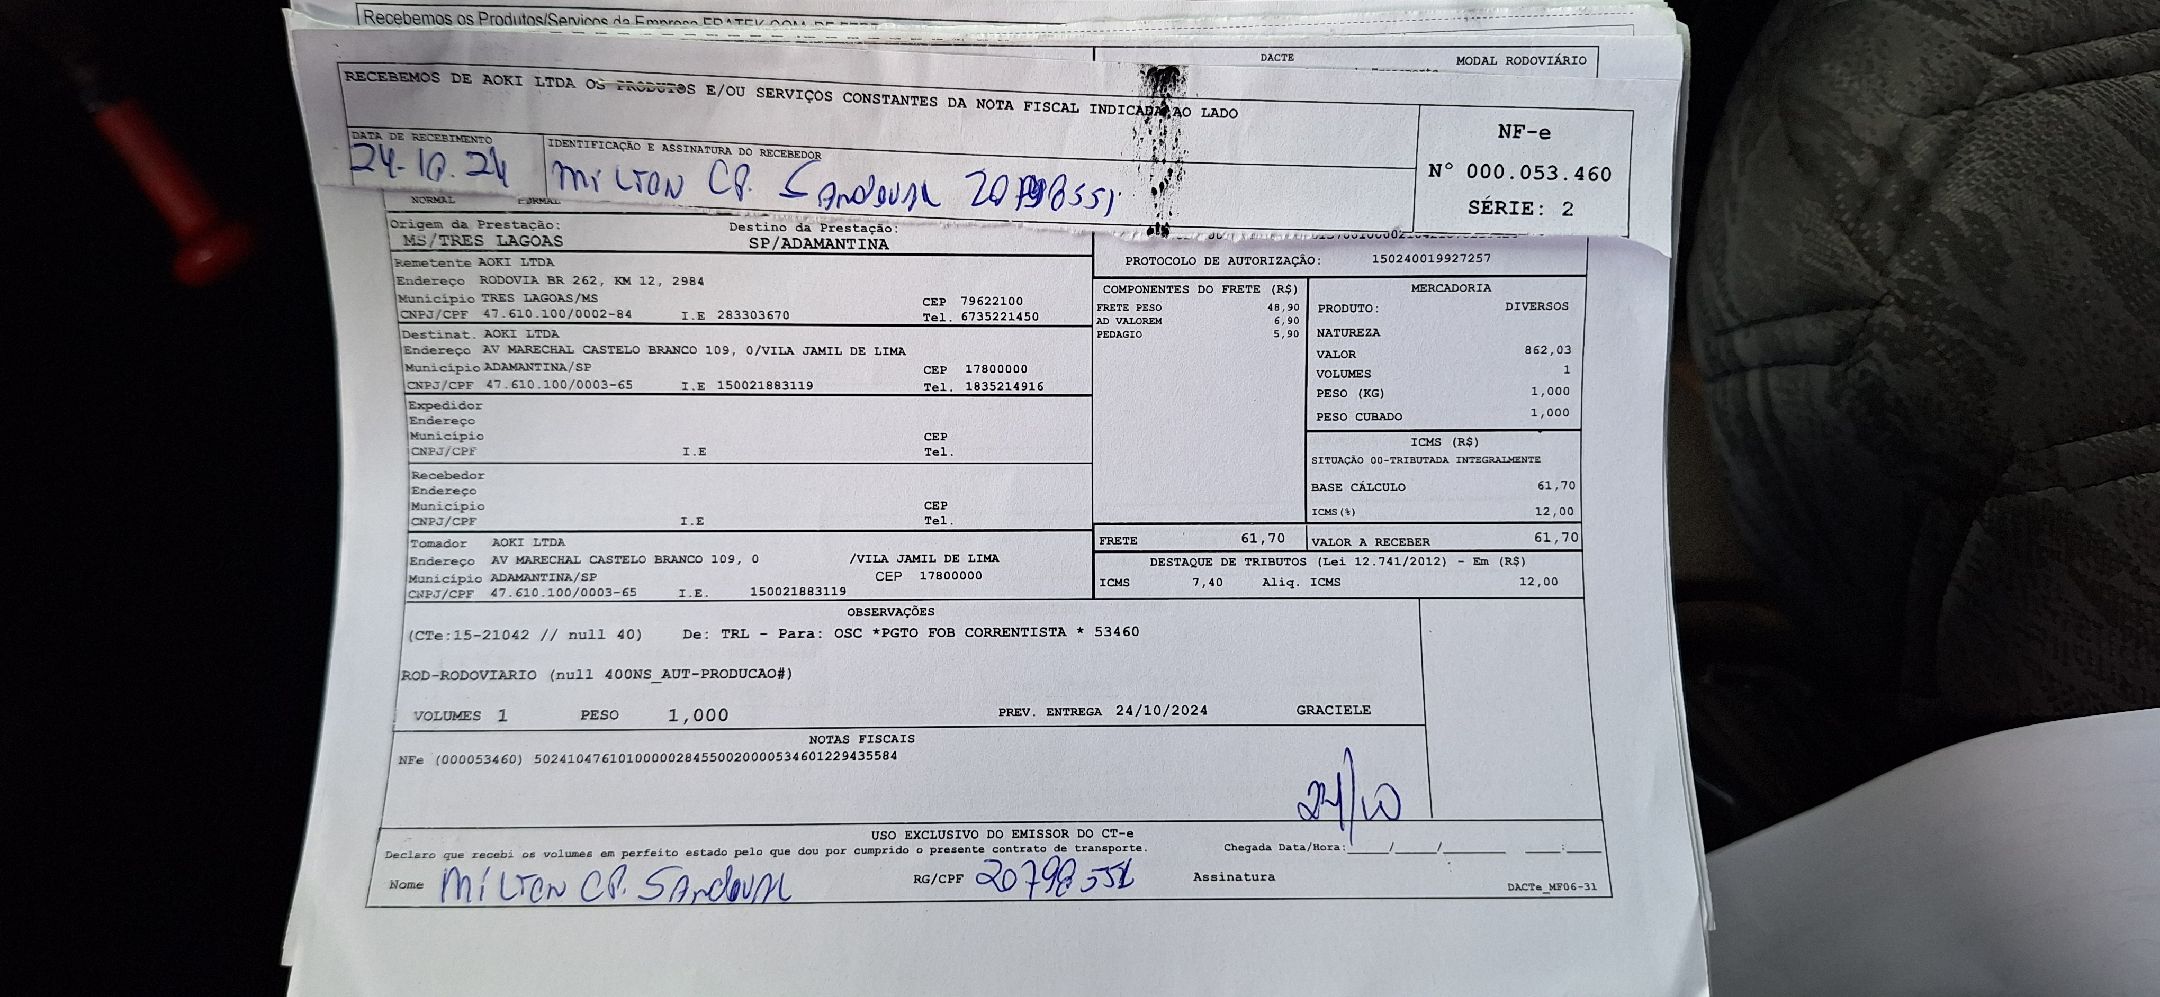 Recebemos os Produtos/Serviços da Empresa
DACTE
MODAL RODOVIÁRIO
RECEBEMOS DE AOKI LTDA OS PRODUTOS E/OU SERVIÇOS CONSTANTES DA NOTA FISCAL INDICADA AO LADO
NF-e
Nº 000.053.460
SÉRIE: 2
DATA DE RECEBIMENTO
24.10.24
IDENTIFICAÇÃO E ASSINATURA DO RECEBEDOR
MILTON CP. SANDOVAL
NORMAL
Origem da Prestação:
MS/TRES LAGOAS
Destino da Prestação:
SP/ADAMANTINA
PROTOCOLO DE AUTORIZAÇÃO: 150240019927257
Remetente AOKI LTDA
Endereço RODOVIA BR 262, KM 12, 2984
Município TRES LAGOAS/MS CEP 79622100
CNPJ/CPF 47.610.100/0002-84 I.E 283303670 Tel. 6735221450
Destinat. AOKI LTDA
Endereço AV MARECHAL CASTELO BRANCO 109, 0/VILA JAMIL DE LIMA
Município ADAMANTINA/SP CEP 17800000
CNPJ/CPF 47.610.100/0003-65 I.E 150021883119 Tel. 1835214916
Expedidor
Endereço
Município CEP
CNPJ/CPF I.E Tel.
Recebedor
Endereço
Município CEP
CNPJ/CPF I.E Tel.
Tomador AOKI LTDA
Endereço AV MARECHAL CASTELO BRANCO 109, 0 /VILA JAMIL DE LIMA
Município ADAMANTINA/SP CEP 17800000
CNPJ/CPF 47.610.100/0003-65 I.E. 150021883119
COMPONENTES DO FRETE (R$)
FRETE PESO 48,90
AD VALOREM 6,90
PEDAGIO 5,90
MERCADORIA
PRODUTO: DIVERSOS
NATUREZA
VALOR 862,03
VOLUMES 1
PESO (KG) 1,000
PESO CUBADO 1,000
ICMS (R$)
SITUAÇÃO 00-TRIBUTADA INTEGRALMENTE
BASE CÁLCULO 61,70
ICMS(%) 12,00
FRETE 61,70
VALOR A RECEBER 61,70
DESTAQUE DE TRIBUTOS (Lei 12.741/2012) - Em (R$)
ICMS 7,40 Aliq. ICMS 12,00
OBSERVAÇÕES
(CTe:15-21042 // null 40) De: TRL - Para: OSC *PGTO FOB CORRENTISTA * 53460
ROD-RODOVIARIO (null 400NS_AUT-PRODUCAO#)
VOLUMES 1 PESO 1,000 PREV. ENTREGA 24/10/2024 GRACIELE
NOTAS FISCAIS
NFe (000053460) 50241047610100000284550020000534601229435584
24/10
USO EXCLUSIVO DO EMISSOR DO CT-e
Declaro que recebi os volumes em perfeito estado pelo que dou por cumprido o presente contrato de transporte. Chegada Data/Hora:____/____/______ ____:____
Nome MILTON CP. SANDOVAL RG/CPF 20798551 Assinatura
DACTe_MF06-31